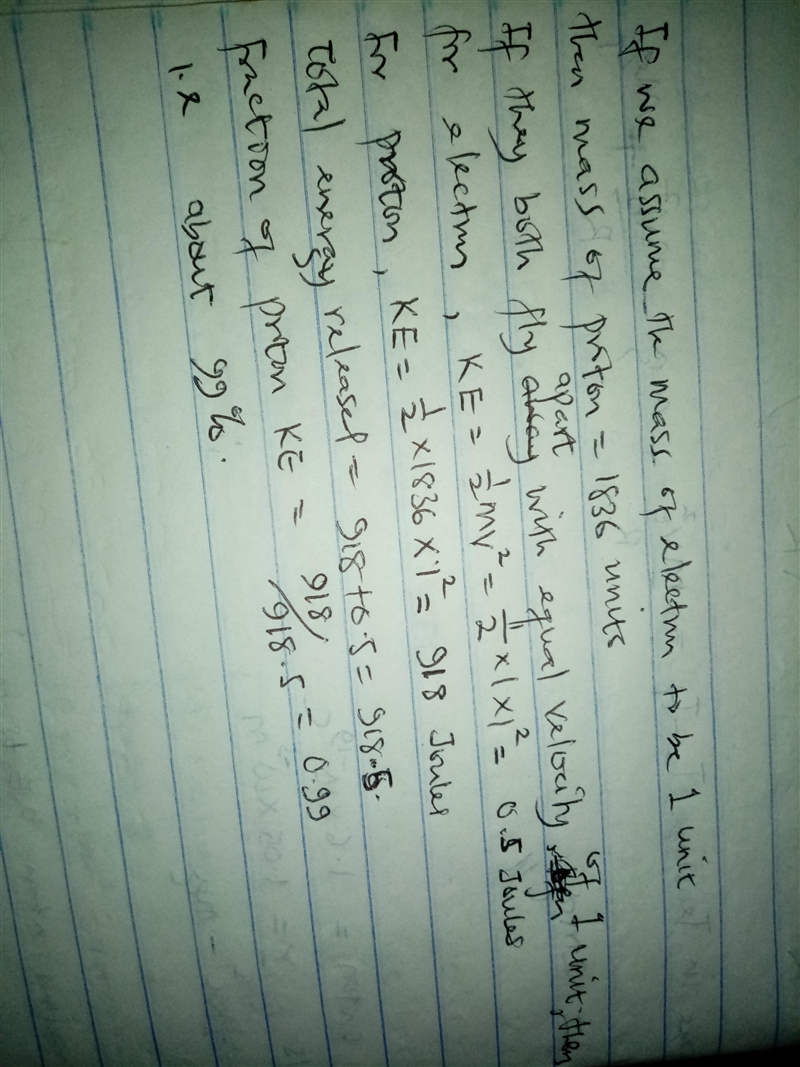 If we assume the mass of electrn to be 1 unit
then mass of proton = 1836 units
If they both fly apart with equal velocity of 1 unit, then
for electrn, KE = ½mv² = ½ x 1 x 1² = 0.5 Joules
for proton, KE = ½ x 1836 x 1² = 918 Joules
total energy released = 918 + 0.5 = 918.5.
fraction of proton KE = 918/918.5 = 0.99
i.e about 99%.